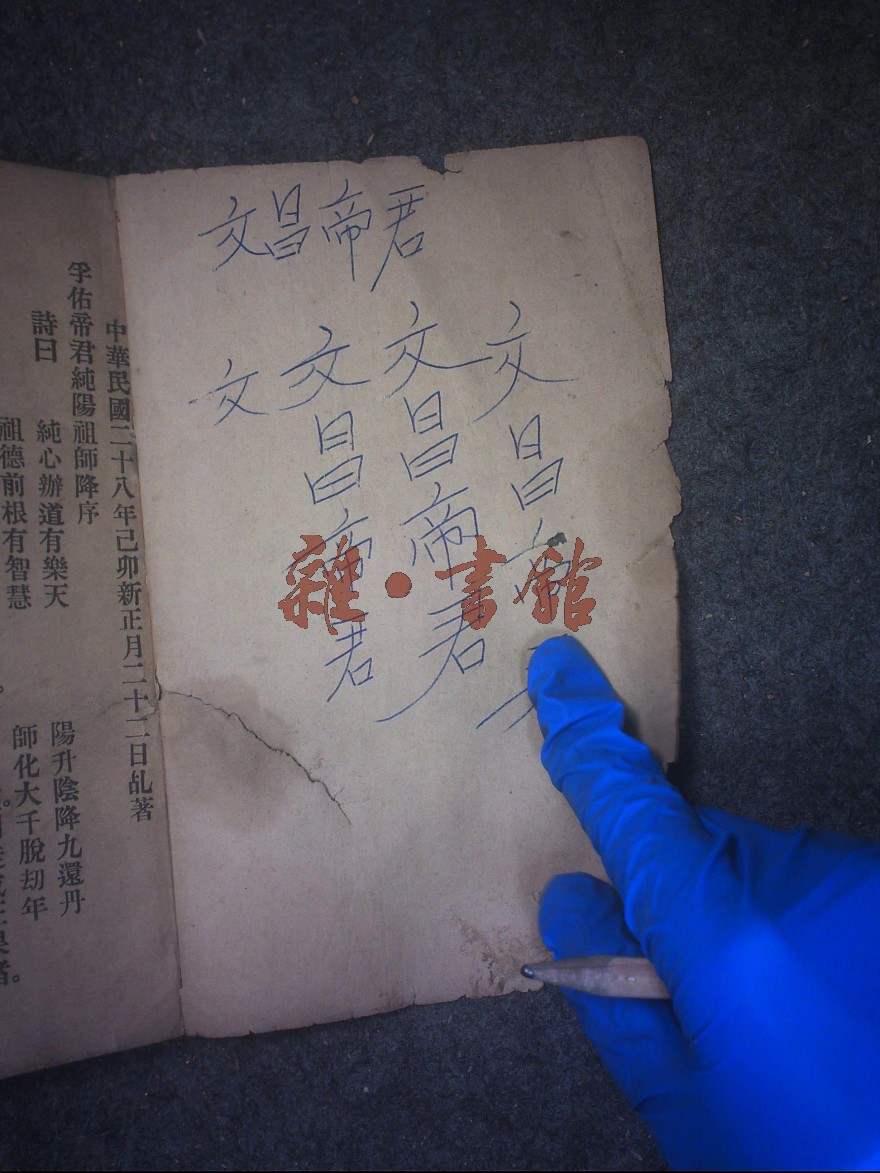 文昌帝君
文昌帝
文昌帝君
文昌帝君
文
雜·書館
中華民國二十八年己卯新正月二十二日乩著
孚佑帝君純陽祖師降序
詩曰 純心辦道有樂天 陽升陰降九還丹
祖德前根有智慧 師化大千脫劫年